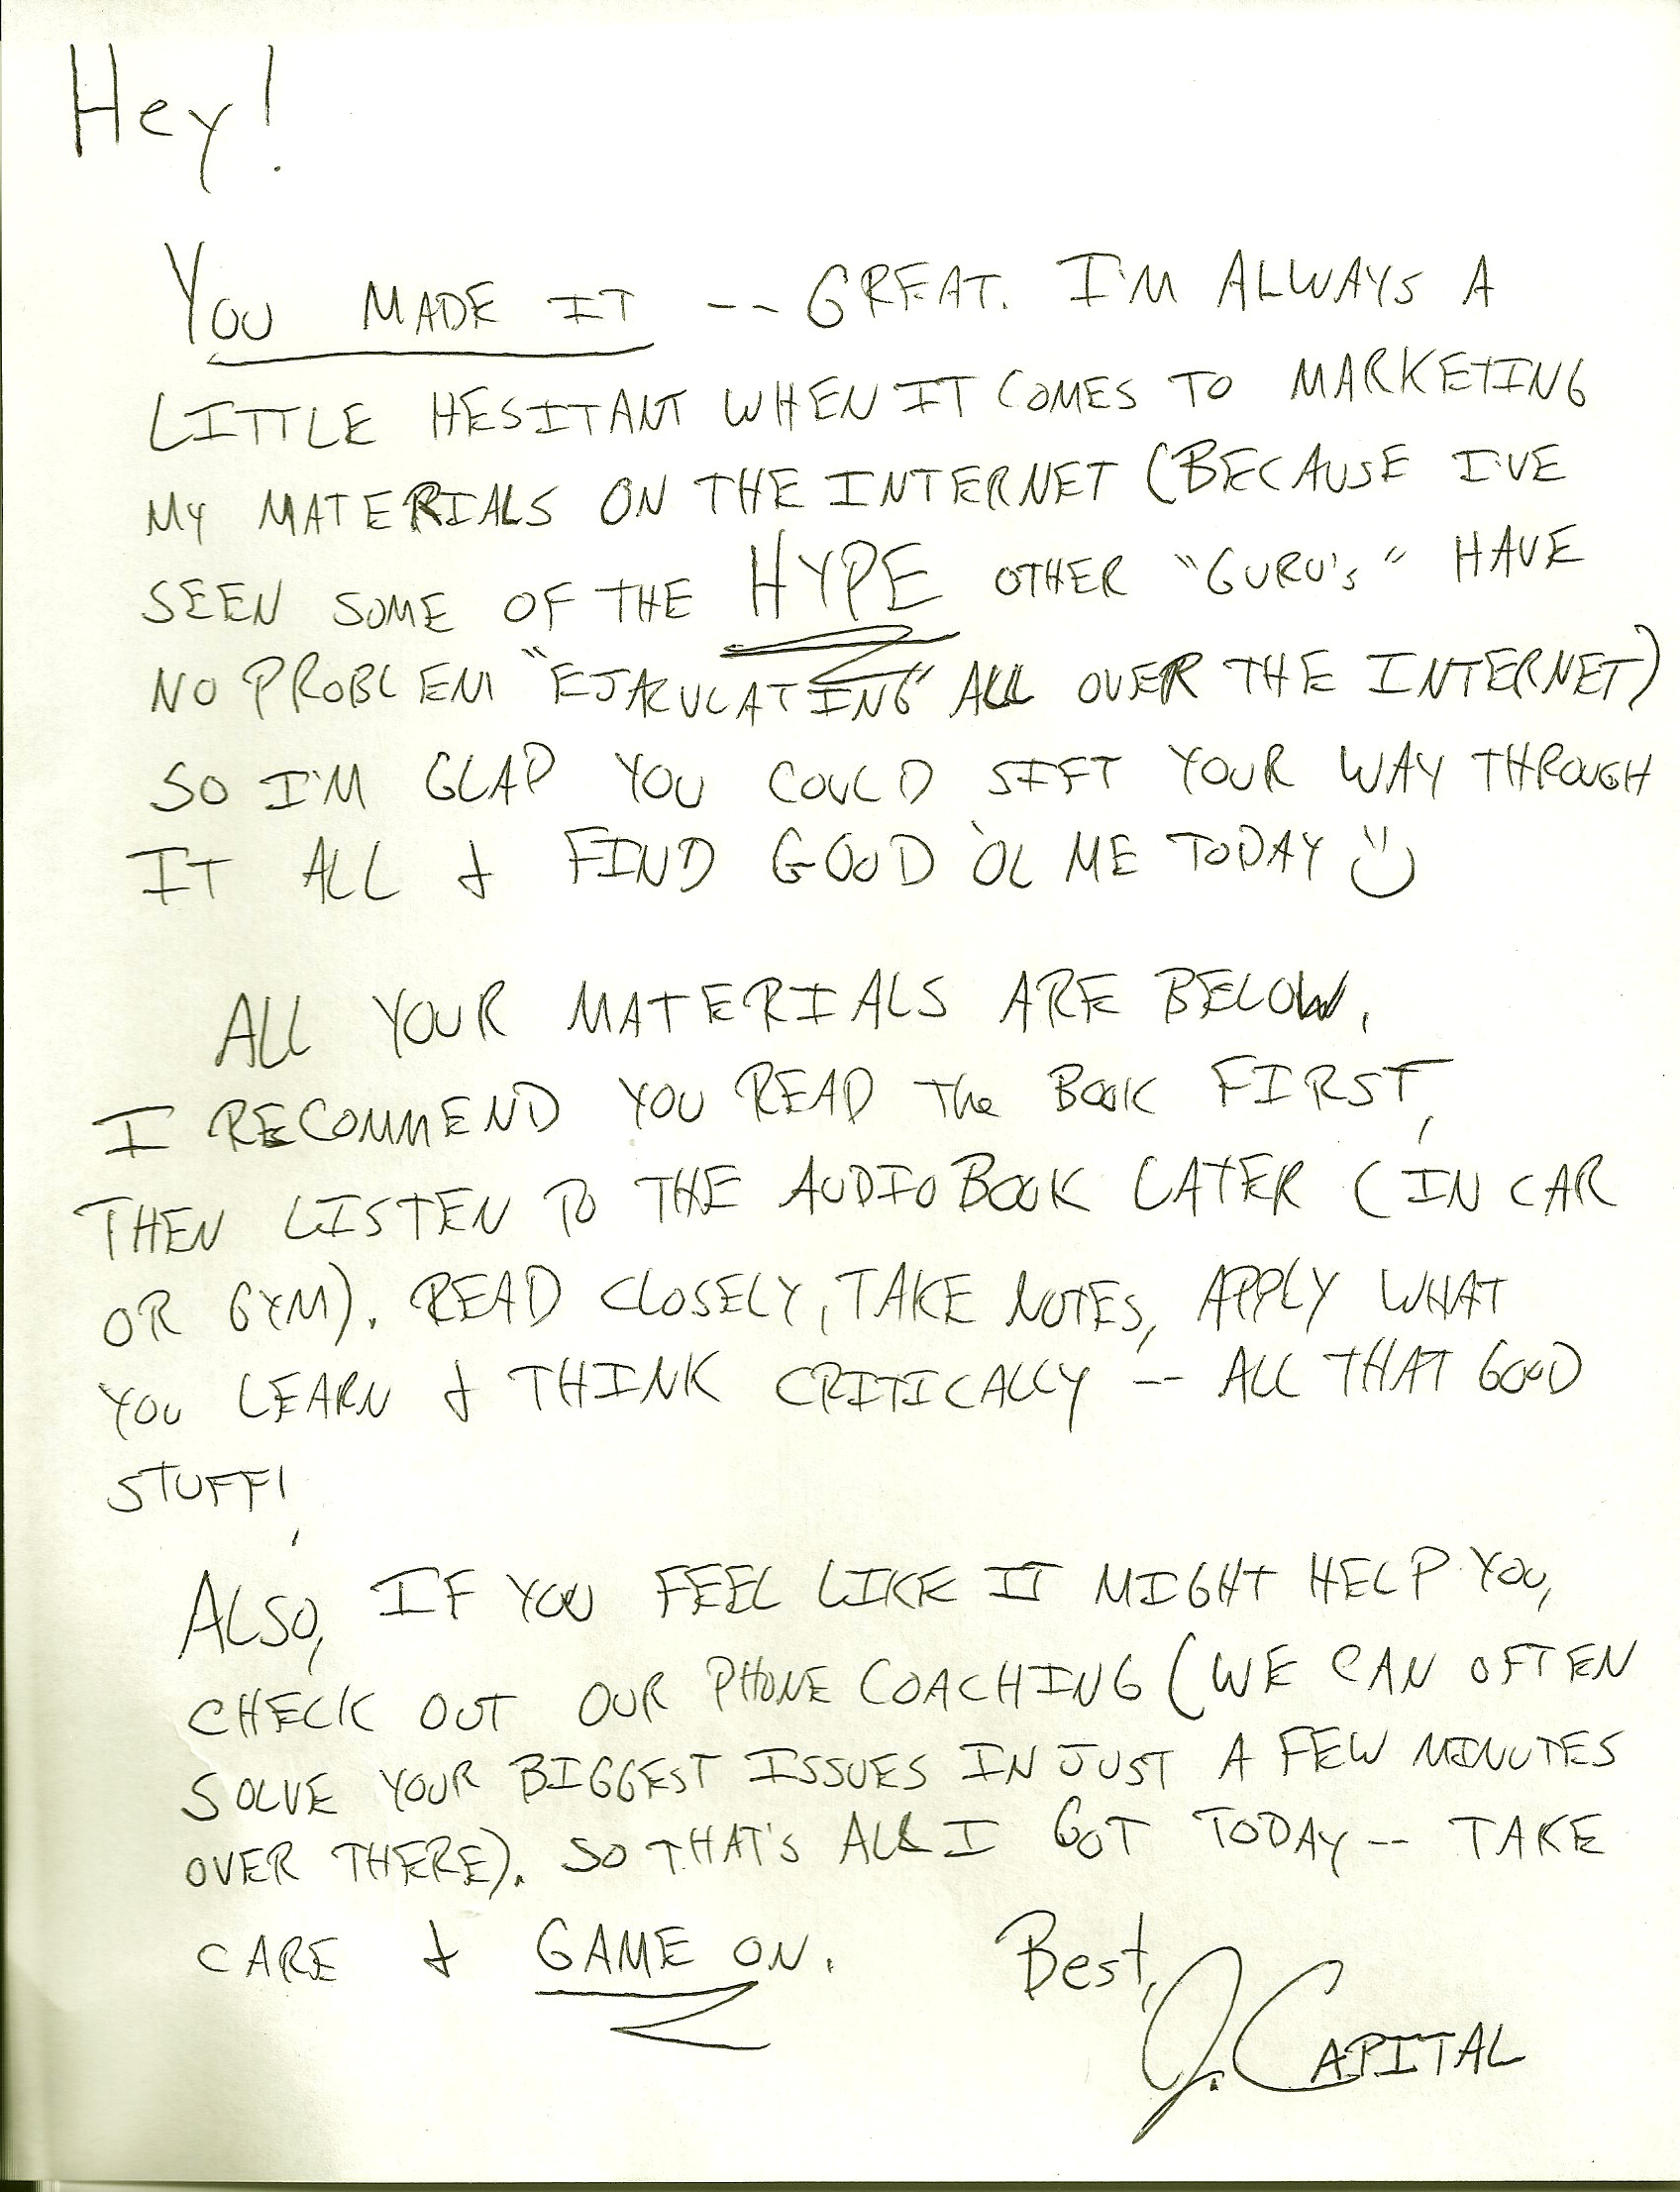 Hey!
YOU MADE IT -- GREAT. I'M ALWAYS A
LITTLE HESITANT WHEN IT COMES TO MARKETING
MY MATERIALS ON THE INTERNET (BECAUSE I'VE
SEEN SOME OF THE HYPE OTHER "GURU's" HAVE
NO PROBLEM "EJACULATING" ALL OVER THE INTERNET)
SO I'M GLAD YOU COULD SIFT YOUR WAY THROUGH
IT ALL & FIND GOOD 'OL ME TODAY :)
ALL YOUR MATERIALS ARE BELOW.
I RECOMMEND YOU READ The BOOK FIRST,
THEN LISTEN TO THE AUDIOBOOK LATER (IN CAR
OR GYM). READ CLOSELY, TAKE NOTES, APPLY WHAT
YOU LEARN & THINK CRITICALLY -- ALL THAT GOOD
STUFF!
ALSO, IF YOU FEEL LIKE IT MIGHT HELP YOU,
CHECK OUT OUR PHONE COACHING (WE CAN OFTEN
SOLVE YOUR BIGGEST ISSUES IN JUST A FEW MINUTES
OVER THERE). SO THAT'S ALL I GOT TODAY -- TAKE
CARE & GAME ON. Best,
J. CAPITAL